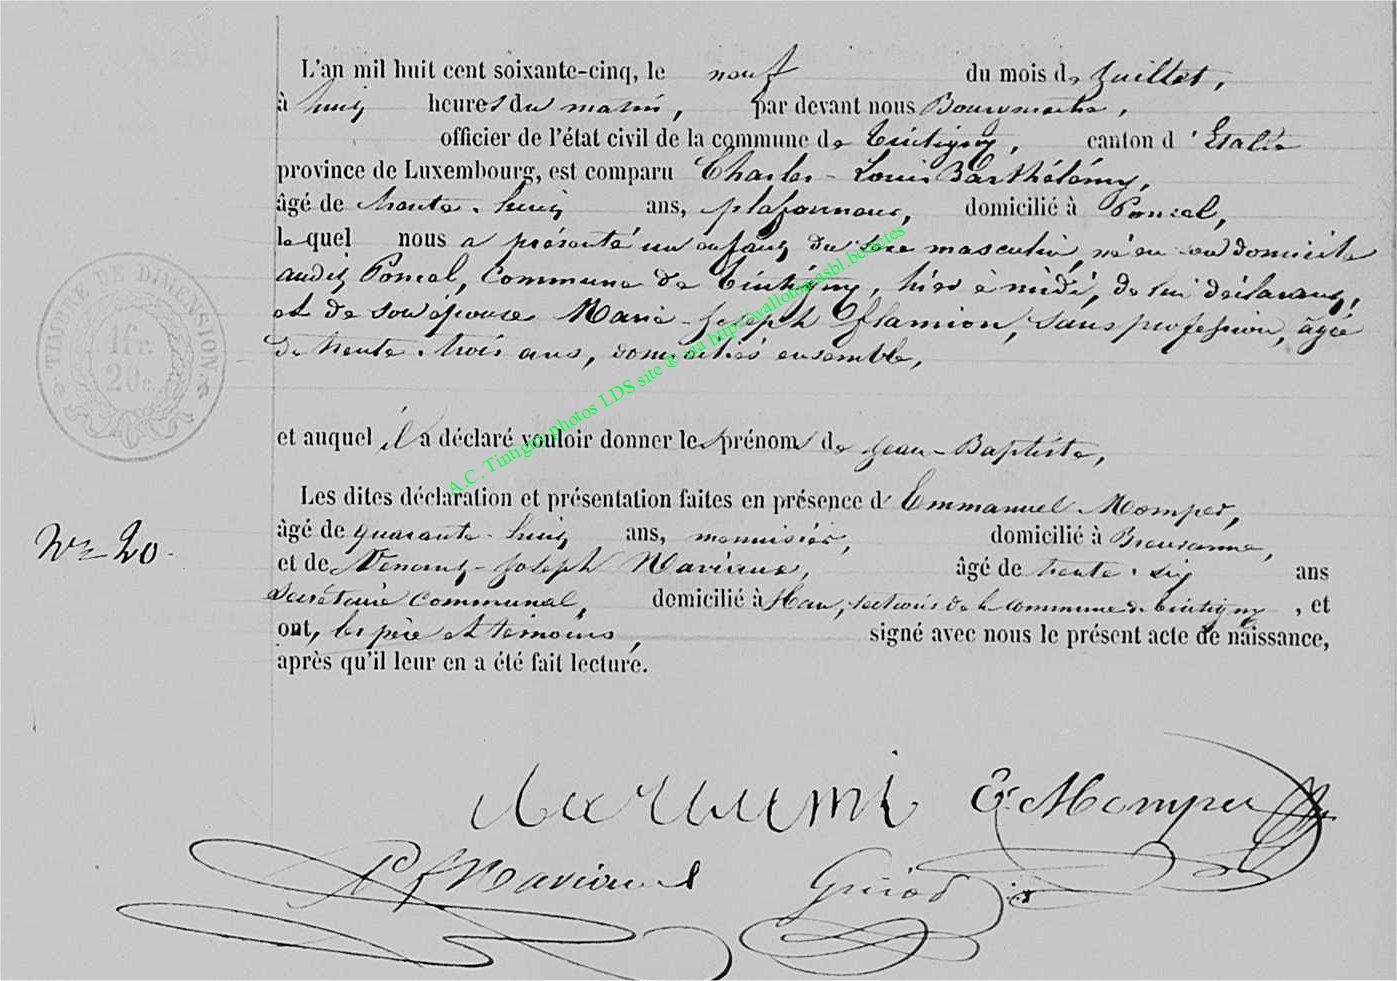 L'an mil huit cent soixante-cinq, le neuf du mois de Juillet,
à huit heures du matin, par devant nous Bourgmestre,
officier de l'état civil de la commune de Tintigny, canton d'Etalle
province de Luxembourg, est comparu Charles-Louis Barthélémy,
âgé de trente-huit ans, plafonneur, domicilié à Poncel,
lequel nous a présenté un enfant du sexe masculin, né en domicile
audit Poncel, commune de Tintigny, hier à midi, de lui déclarant,
et de son épouse Marie-Joseph Flamion, sans profession, âgée
de trente-trois ans, domiciliés ensemble,
et auquel il a déclaré vouloir donner les prénoms de Jean-Baptiste,
Les dites déclaration et présentation faites en présence d'Emmanuel Momper,
âgé de quarante-huit ans, menuisier, domicilié à Breuvanne,
N° 20.
et de Venant-Joseph Naviaux, âgé de trente-six ans
Secrétaire communal, domicilié à Han, sections de la commune de Tintigny, et
ont, les père et témoins, signé avec nous le présent acte de naissance,
après qu'il leur en a été fait lecture.
E. Momper
TIMBRE DE DIMENSION
1 fr.
20 c.
A.C. Tintigny photos LDS site © via http://wallonia-asbl.be/actes